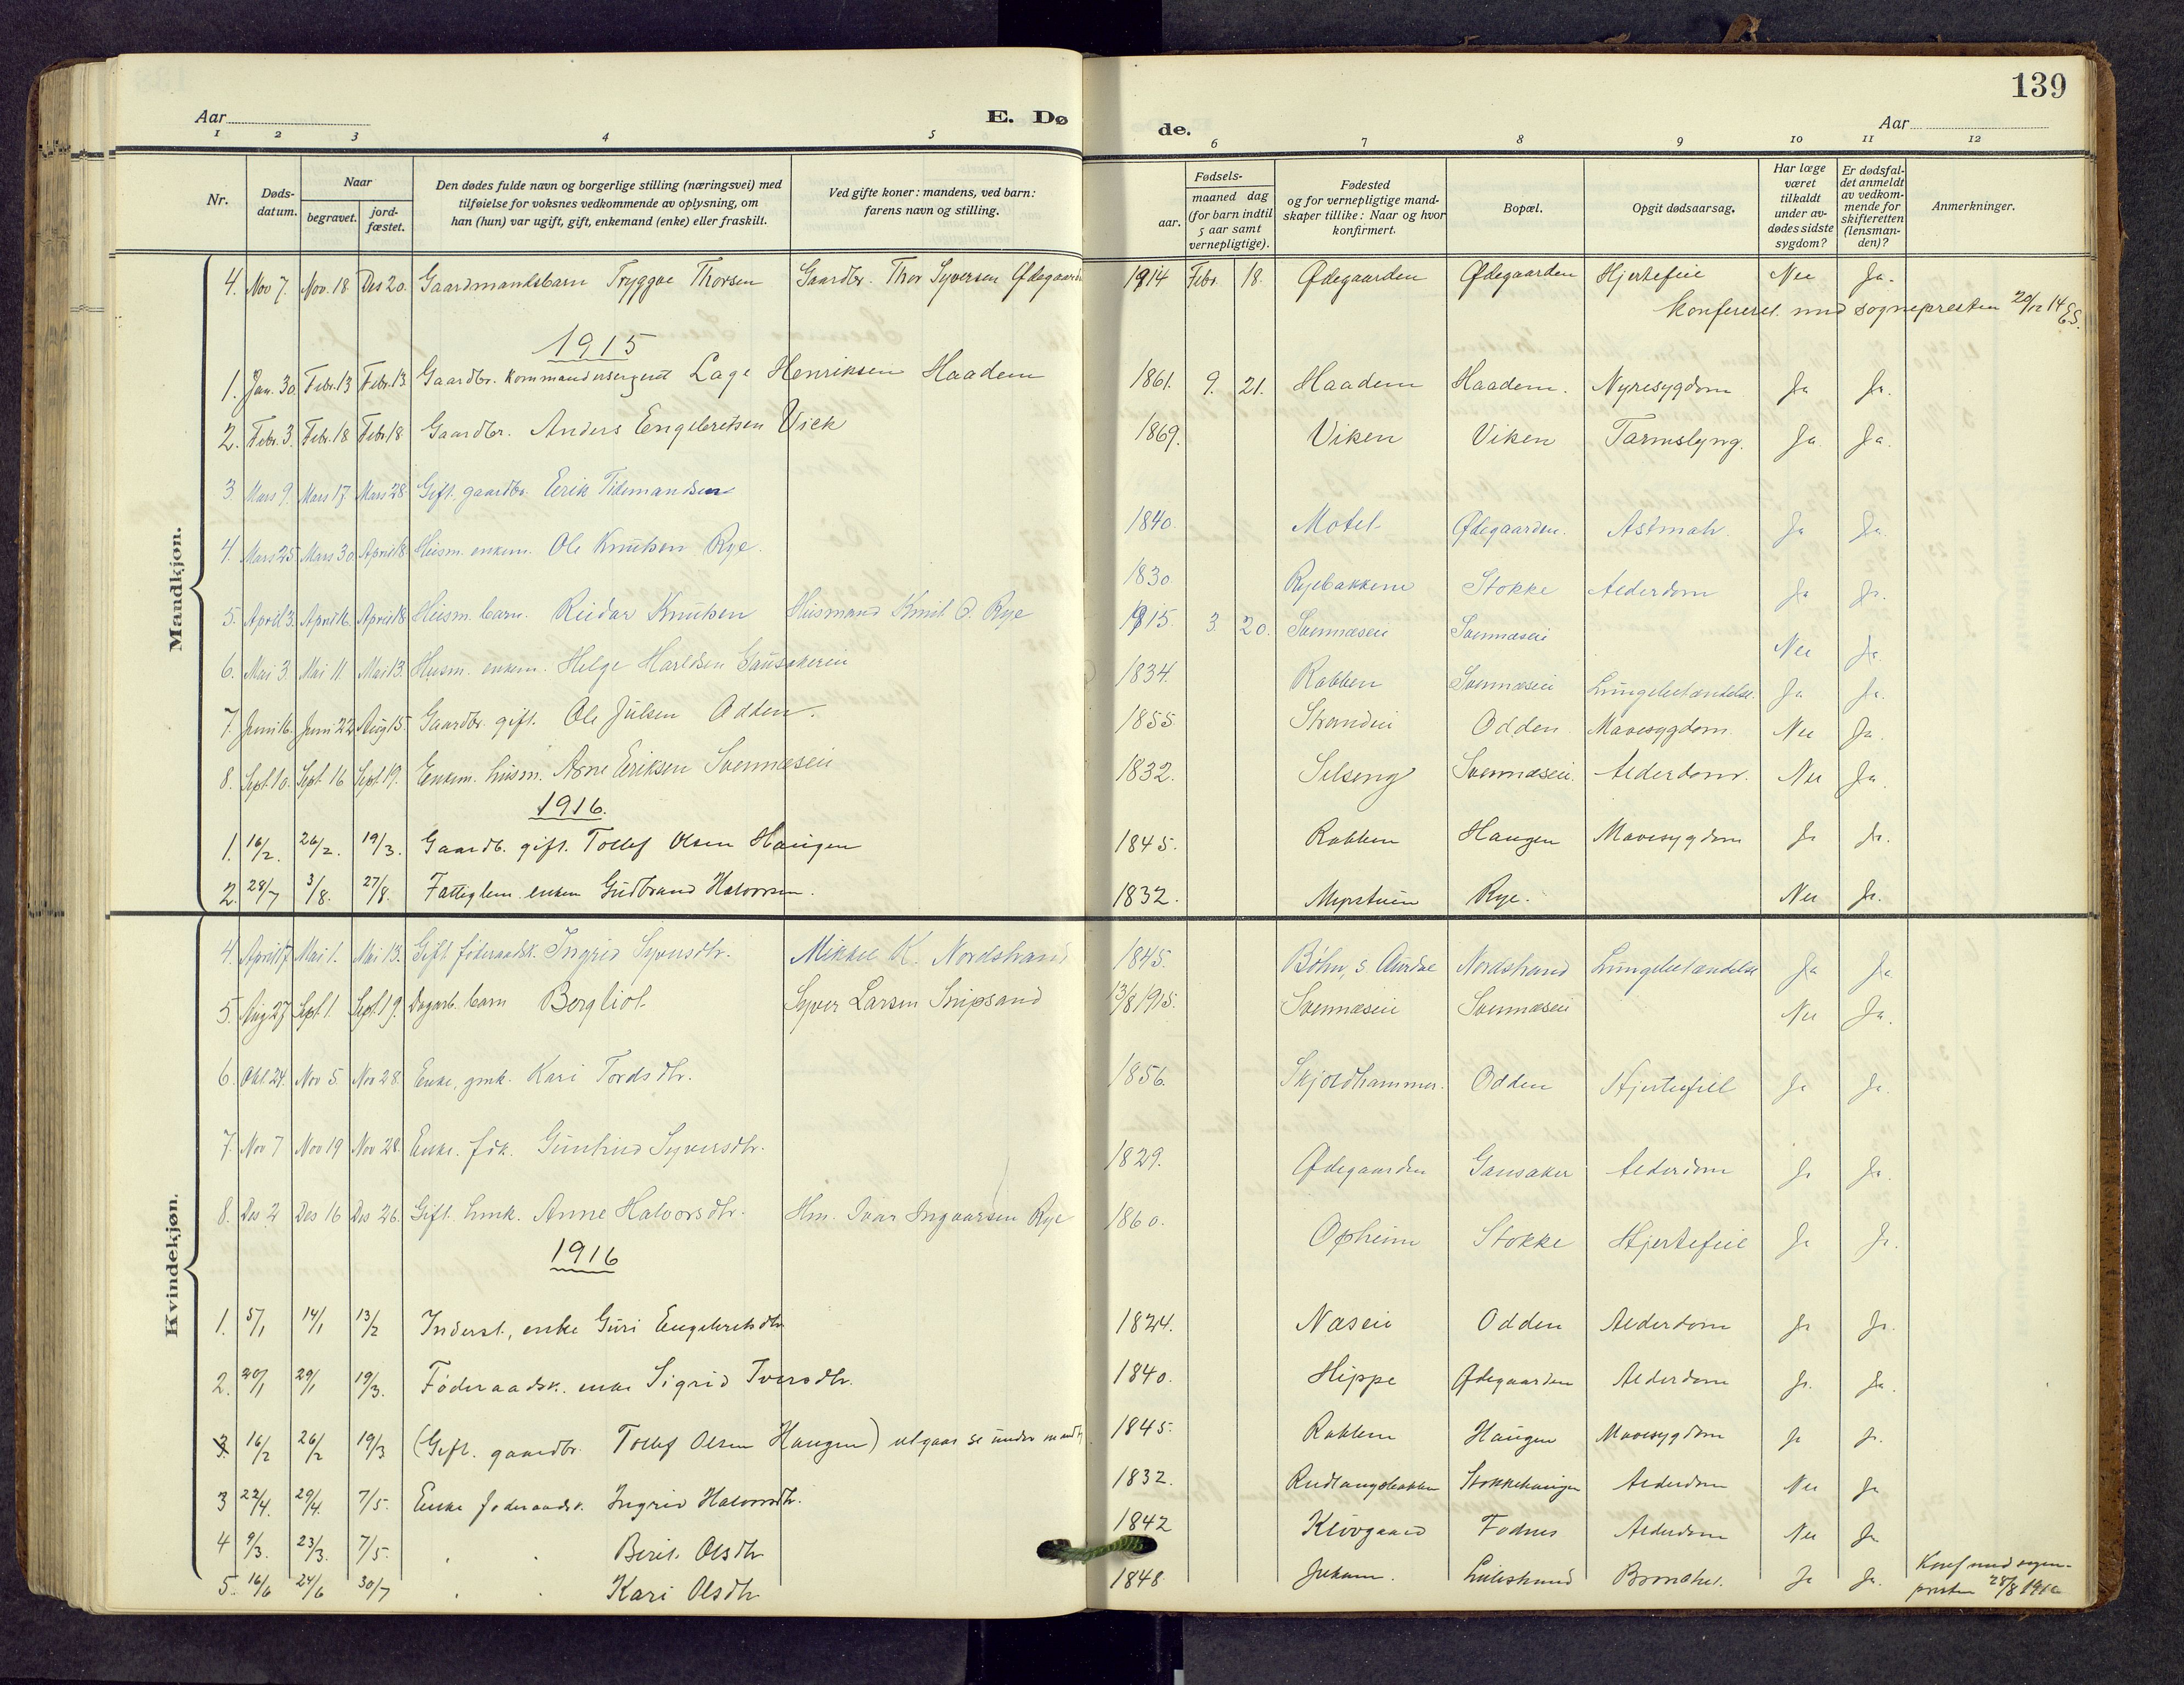 139
Aar
E. Dø
de.
Aar
1 2 3 4 5 6 7 8 9 10 11 12
Nr.
Døds-datum.
Naar
begravet.
jord-fæstet.
Den dødes fulde navn og borgerlige stilling (næringsvei) med
tilføielse for voksnes vedkommende av oplysning, om
han (hun) var ugift, gift, enkemand (enke) eller fraskilt.
Ved gifte koner: mandens, ved barn:
farens navn og stilling.
Fødsels-
aar.
maaned dag
(for barn indtil
5 aar samt
vernepligtige).
Fødested
og for vernepligtige mand-
skaper tillike: Naar og hvor
konfirmert.
Bopæl.
Opgit dødsaarsag.
Har læge
været
tilkaldt
under av-
dødes sidste
sygdom?
Er dødsfal-
det anmeldt
av vedkom-
mende for
skifteretten
(lensman-
den)?
Anmerkninger.
Mandkjøn.
4. Nov 7. Nov. 18 Des 20. Gaardmandsbarn Tryggve Thorsen Gaardbr. Thor Syversen Ødegaarden 1914 Febr. 18. Ødegaarden Ødegaarden Hjertefeil Nei Ja.
Konfereret med sognepresten 20/12 14 ES.
1915
1. Jan. 30. Febr. 13 Febr. 13. Gaardbr. Kommandersergent Lage Henriksen Haadem 1861. 9. 21. Haadem Haadem. Nyresygdom Ja Ja.
2. Febr. 3. Febr. 18 Febr. 18 Gaardbr. Anders Engebretsen Viek 1869. Viken Viken Tarmslyng. Ja Ja.
3 Mars 9. Mars 17. Mars 28. Gift. gaardbr. Eerik Tidemandsen 1840. Motet Ødegaarden. Astmah. Ja Ja
4. Mars 25. Mars 30. April 18. Husm. enkem. Ole Knutsen Rye. 1830 Ryebakkene Stokke Alderdom Ja Ja.
5. April 3. April 16. April 18 Husm. barn. Reidar Knutsen Husmand Knut O. Rye 1915. 3. 20. Svennæseie Svennæseie Nei Ja.
6. Mai 3. Mai 11 Mai 13. Husm. enkem. Helge Harldsen Gausakereie 1834. Robben Svennæseie Lungebetændelse. Ja Ja.
7. Juni 16. Juni 22 Aug 15. Gaardbr. gift. Ole Julsen Odden. 1855 Strandeie Odden. Mavesygdom Nei Ja.
8. Sept. 10. Sept. 16 Sept. 19. Enkem. husm. Arne Eriksen Svennæseie 1832. Selseng Svennæseie. Alderdom. Nei Ja.
1916.
1. 16/2. 26/2. 19/3. Gaardb. gift. Tollef Olsen Haugen 1845. Robben Haugen Mavesygdom Ja Ja.
2. 28/7 3/8. 27/8. Fattiglem. enkem Gudbrand Halvorsen. 1832. Myrstuen Rye. Nei Ja.
Kvindekjøn.
4. April 17. Mai 1. Mai 13. Gift føderaadsk. Ingrid Syversdtr. Mikkel K. Nordstrand 1845. Bøhn, S. Aurdal Nordstrand Lungebetændelse Ja Ja
5. Aug 27 Sept 1. Sept. 19. Dagarb. barn Bergliot Syver Larsen Snipsand 13/8 1915. Svennæseie Svennæseie Nei Ja.
6. Okt 24. Nov 5. Nov 28. Enke, gmk. Kari Tordsdtr. 1856. Skjoldhammer. Odden Hjertefeil Ja Ja
7. Nov 7 Nov 19 Nov 28. Enke. fdk. Gunhild Syversdtr. 1829. Ødegaarden Gausaker Alderdom Ja Ja.
8. Des 2 Des 16 Des 26. Gift. hmk. Anne Halvorsdtr. Hm. Ivar Ingvarsen Rye 1860. Opheim Stokke Hjertefeil Ja Ja.
1916
1. 5/1 14/1 13/2 Inderst, enke Guri Engebretsdtr 1824. Næseie Odden Alderdom Ja Ja.
2. 20/1 29/1 19/3. Føderaadsk. enke Sigrid Iversdtr. 1840. Hippe Ødegaarden Alderdom Ja. Ja.
3. 16/2 26/2 19/3 (Gift. gaardbr. Tollef Olsen Haugen) utgaar se under mandkj 1845. Robben Haugen Mavesygdom Ja Ja.
3 22/4. 29/4. 7/5. Enke føderaadsk. Ingrid Halvorsdtr. 1832. Rudlangsbakken Stokkehaugen Alderdom Nei Ja
4 9/3. 23/3. 7/5. " " Berit Olsdtr 1842 Klovgaard Fodnes Alderdom Nei Ja
5. 16/6 24/6 30/7 " " Kari Olsdtr 1848 Lillestrand Ja Ja. Konf med sogne-
presten 28/8 1916